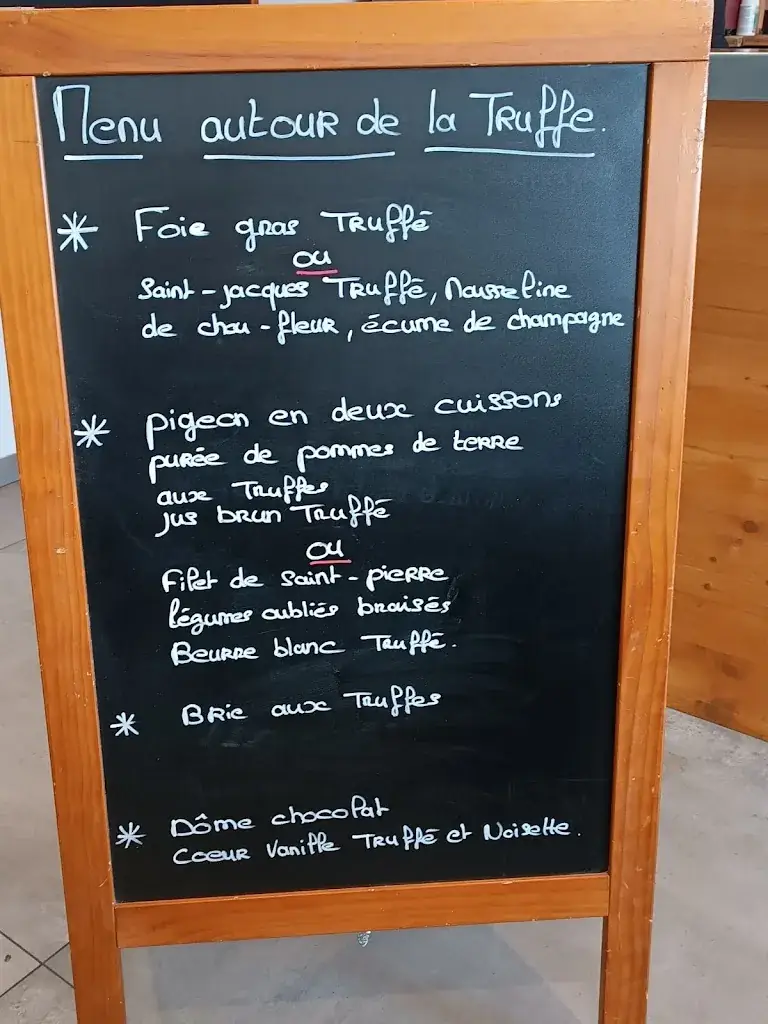 Menu autour de la Truffe.
* Foie gras Truffé
ou
Saint-jacques Truffé, Mousseline
de chou-fleur, écume de champagne
* pigeon en deux cuissons
purée de pommes de terre
aux Truffes
jus brun Truffé
ou
Filet de Saint-pierre
légumes oubliés braisés
Beurre blanc Truffé.
* Brie aux Truffes
* Dôme chocolat
Coeur Vanille Truffé et Noisette.